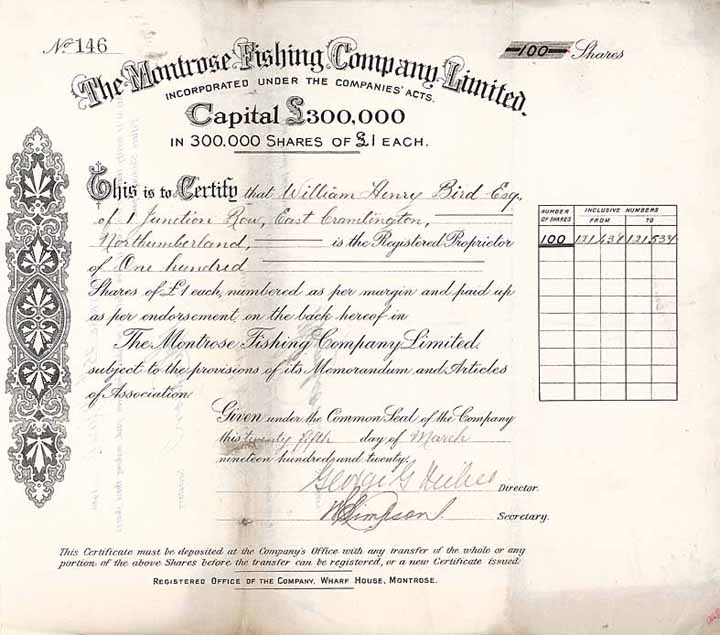 No 146
100 Shares
The Montrose Fishing Company Limited.
INCORPORATED UNDER THE COMPANIES' ACTS.
Capital £300,000
IN 300.000 SHARES OF £1 EACH.
This is to Certify that William Henry Bird Esq,
of 1 Junction Row, East Cramlington,
Northumberland, is the Registered Proprietor
of One hundred
Shares of £1 each, numbered as per margin and paid up
as per endorsement on the back hereof in
The Montrose Fishing Company Limited.
subject to the provisions of its Memorandum and Articles
of Association
NUMBER OF SHARES INCLUSIVE NUMBERS
FROM TO
100
Given under the Common Seal of the Company
this twenty fifth day of March
nineteen hundred and twenty.
George G Director.
W Simpson Secretary.
This Certificate must be deposited at the Company's Office with any transfer of the whole or any
portion of the above Shares before the transfer can be registered, or a new Certificate issued.
REGISTERED OFFICE OF THE COMPANY. WHARF HOUSE, MONTROSE.